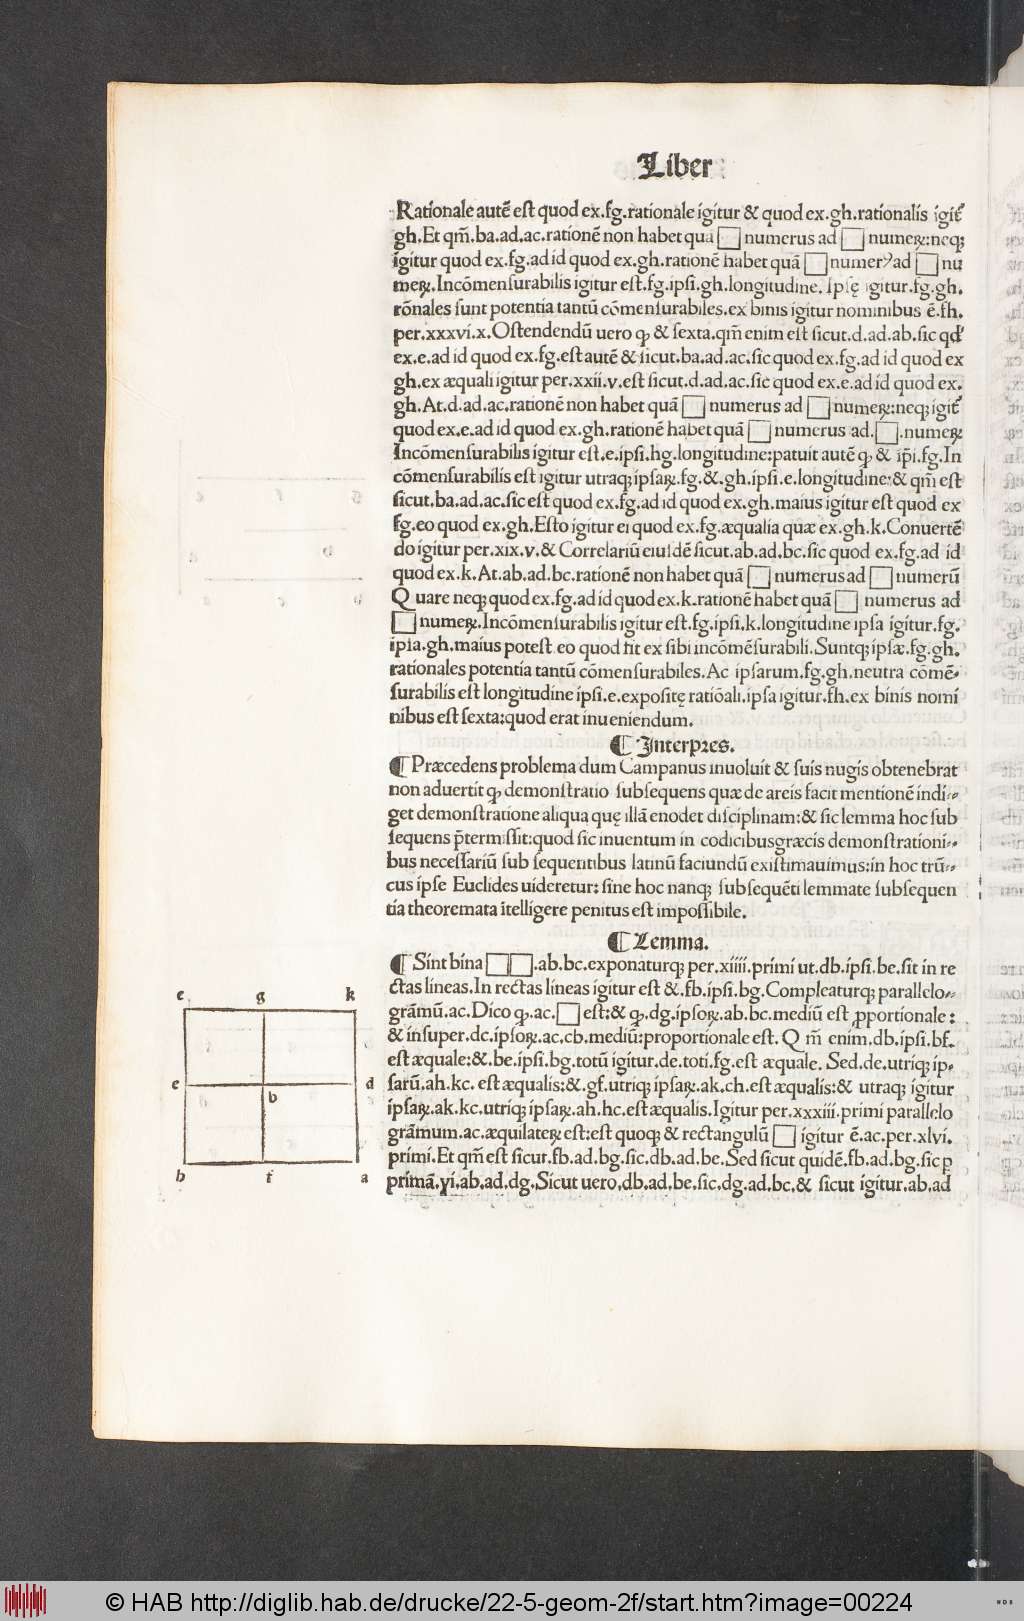 Liber
Rationale autē est quod ex.fg.rationale igitur & quod ex.gh.rationalis igit᷑
gh.Et qm̄.ba.ad.ac.rationē non habet quā □ numerus ad □ numeꝝ:neqꝫ
igitur quod ex.fg.ad id quod ex.gh.rationē habet quā □ numerꝰ ad □ nu
meꝝ.Incōmensurabilis igitur est.fg.ipsi.gh.longitudine. Ipsę igitur.fg.gh.
rōnales sunt potentia tantū cōmensurabiles.ex binis igitur nominibus ē.fh.
per.xxxvi.x.Ostendendū uero ꝙ & sexta.qm̄ enim est sicut.d.ad.ab.sic qd'
ex.e.ad id quod ex.fg.est autē & sicut.ba.ad.ac.sic quod ex.fg.ad id quod ex
gh.ex æquali igitur per.xxii.v.est sicut.d.ad.ac.sic quod ex.e.ad id quod ex.
gh.At.d.ad.ac.rationē non habet quā □ numerus ad □ numeꝝ:neqꝫ igit᷑
quod ex.e.ad id quod ex.gh.rationē habet quā □ numerus ad.□.numeꝝ
Incōmensurabilis igitur est.e.ipsi.hg.longitudine:patuit autē ꝙ & ip̄i.fg.In
cōmensurabilis est igitur utraqꝫ ipsaꝝ.fg.&.gh.ipsi.e.longitudine:& qm̄ est
sicut.ba.ad.ac.sic est quod ex.fg.ad id quod ex.gh.maius igitur est quod ex
fg.eo quod ex.gh.Esto igitur ei quod ex.fg.æqualia quæ ex.gh.k.Conuertē
do igitur per.xix.v.& Correlariū eiusdē sicut.ab.ad.bc.sic quod ex.fg.ad id
quod ex.k.At.ab.ad.bc.rationē non habet quā □ numerus ad □ numerū
Quare neqꝫ quod ex.fg.ad id quod ex.k.rationē habet quā □ numerus ad
□ numeꝝ.Incōmensurabilis igitur est.fg.ipsi.k.longitudine ipsa igitur.fg.
ipsa.gh.maius potest eo quod fit ex sibi incōmēsurabili.Suntqꝫ ipsæ.fg.gh.
rationales potentia tantū cōmensurabiles.Ac ipsarum.fg.gh.neutra cōmē-
surabilis est longitudine ipsi.e.expositę ratiōali.ipsa igitur.fh.ex binis nomi
nibus est sexta:quod erat inueniendum.
¶ Interpres.
¶ Præcedens problema dum Campanus inuoluit & suis nugis obtenebrat
non aduertit ꝙ demonstratio subsequens quæ de areis facit mentionē indi-
get demonstratione aliqua quę illā enodet disciplinam:& sic lemma hoc sub
sequens p̄termissit:quod sic inuentum in codicibus græcis demonstrationi-
bus necessariū sub sequentibus latinū faciundū existimauimus:in hoc trū-
cus ipse Euclides uideretur: sine hoc nanqꝫ subsequēti lemmate subsequen
tia theoremata ītelligere penitus est impossibile.
¶ Lemma.
¶ Sint bina □□.ab.bc.exponaturqꝫ per.xiiii.primi ut.db.ipsi.be.sit in re
ctas lineas.In rectas lineas igitur est &.fb.ipsi.bg.Compleaturqꝫ parallelo-
grāmū.ac.Dico ꝙ.ac.□ est:& ꝙ.dg.ipsoꝝ.ab.bc.mediū est ꝓportionale:
& insuper.dc.ipsoꝝ.ac.cb.mediū:proportionale est. Qm̄ enim.db.ipsi.bf.
est æquale:&.be.ipsi.bg.totū igitur.de.toti.fg.est æquale. Sed.de.utriqꝫ ip-
sarū.ah.kc. est æqualis:&.gf.utriqꝫ ipsaꝝ.ak.ch.est æqualis:& utraqꝫ igitur
ipsaꝝ.ak.kc.utriqꝫ ipsaꝝ.ah.hc.est æqualis.Igitur per.xxxiii.primi parallelo
grāmum.ac.æquilateꝝ est:est quoqꝫ & rectangulū □ igitur ē.ac.per.xlvi.
primi.Et qm̄ est sicut.fb.ad.bg.sic.db.ad.be.Sed sicut quidē.fb.ad.bg.sic ꝑ
primā.vi.ab.ad.dg.Sicut uero.db.ad.be.sic.dg.ad.bc.& sicut igitur.ab.ad
c g k
e d
b
h f a
© HAB http://diglib.hab.de/drucke/22-5-geom-2f/start.htm?image=00224